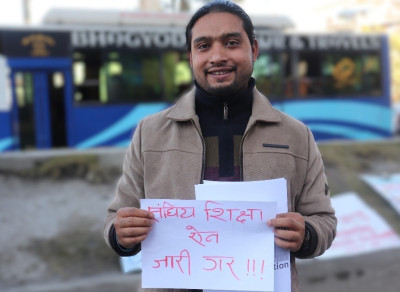 BHAGYODAYA TOUR & TRAVELS
संघिय शिक्षा
ऐन
जारी गर !!!
tion